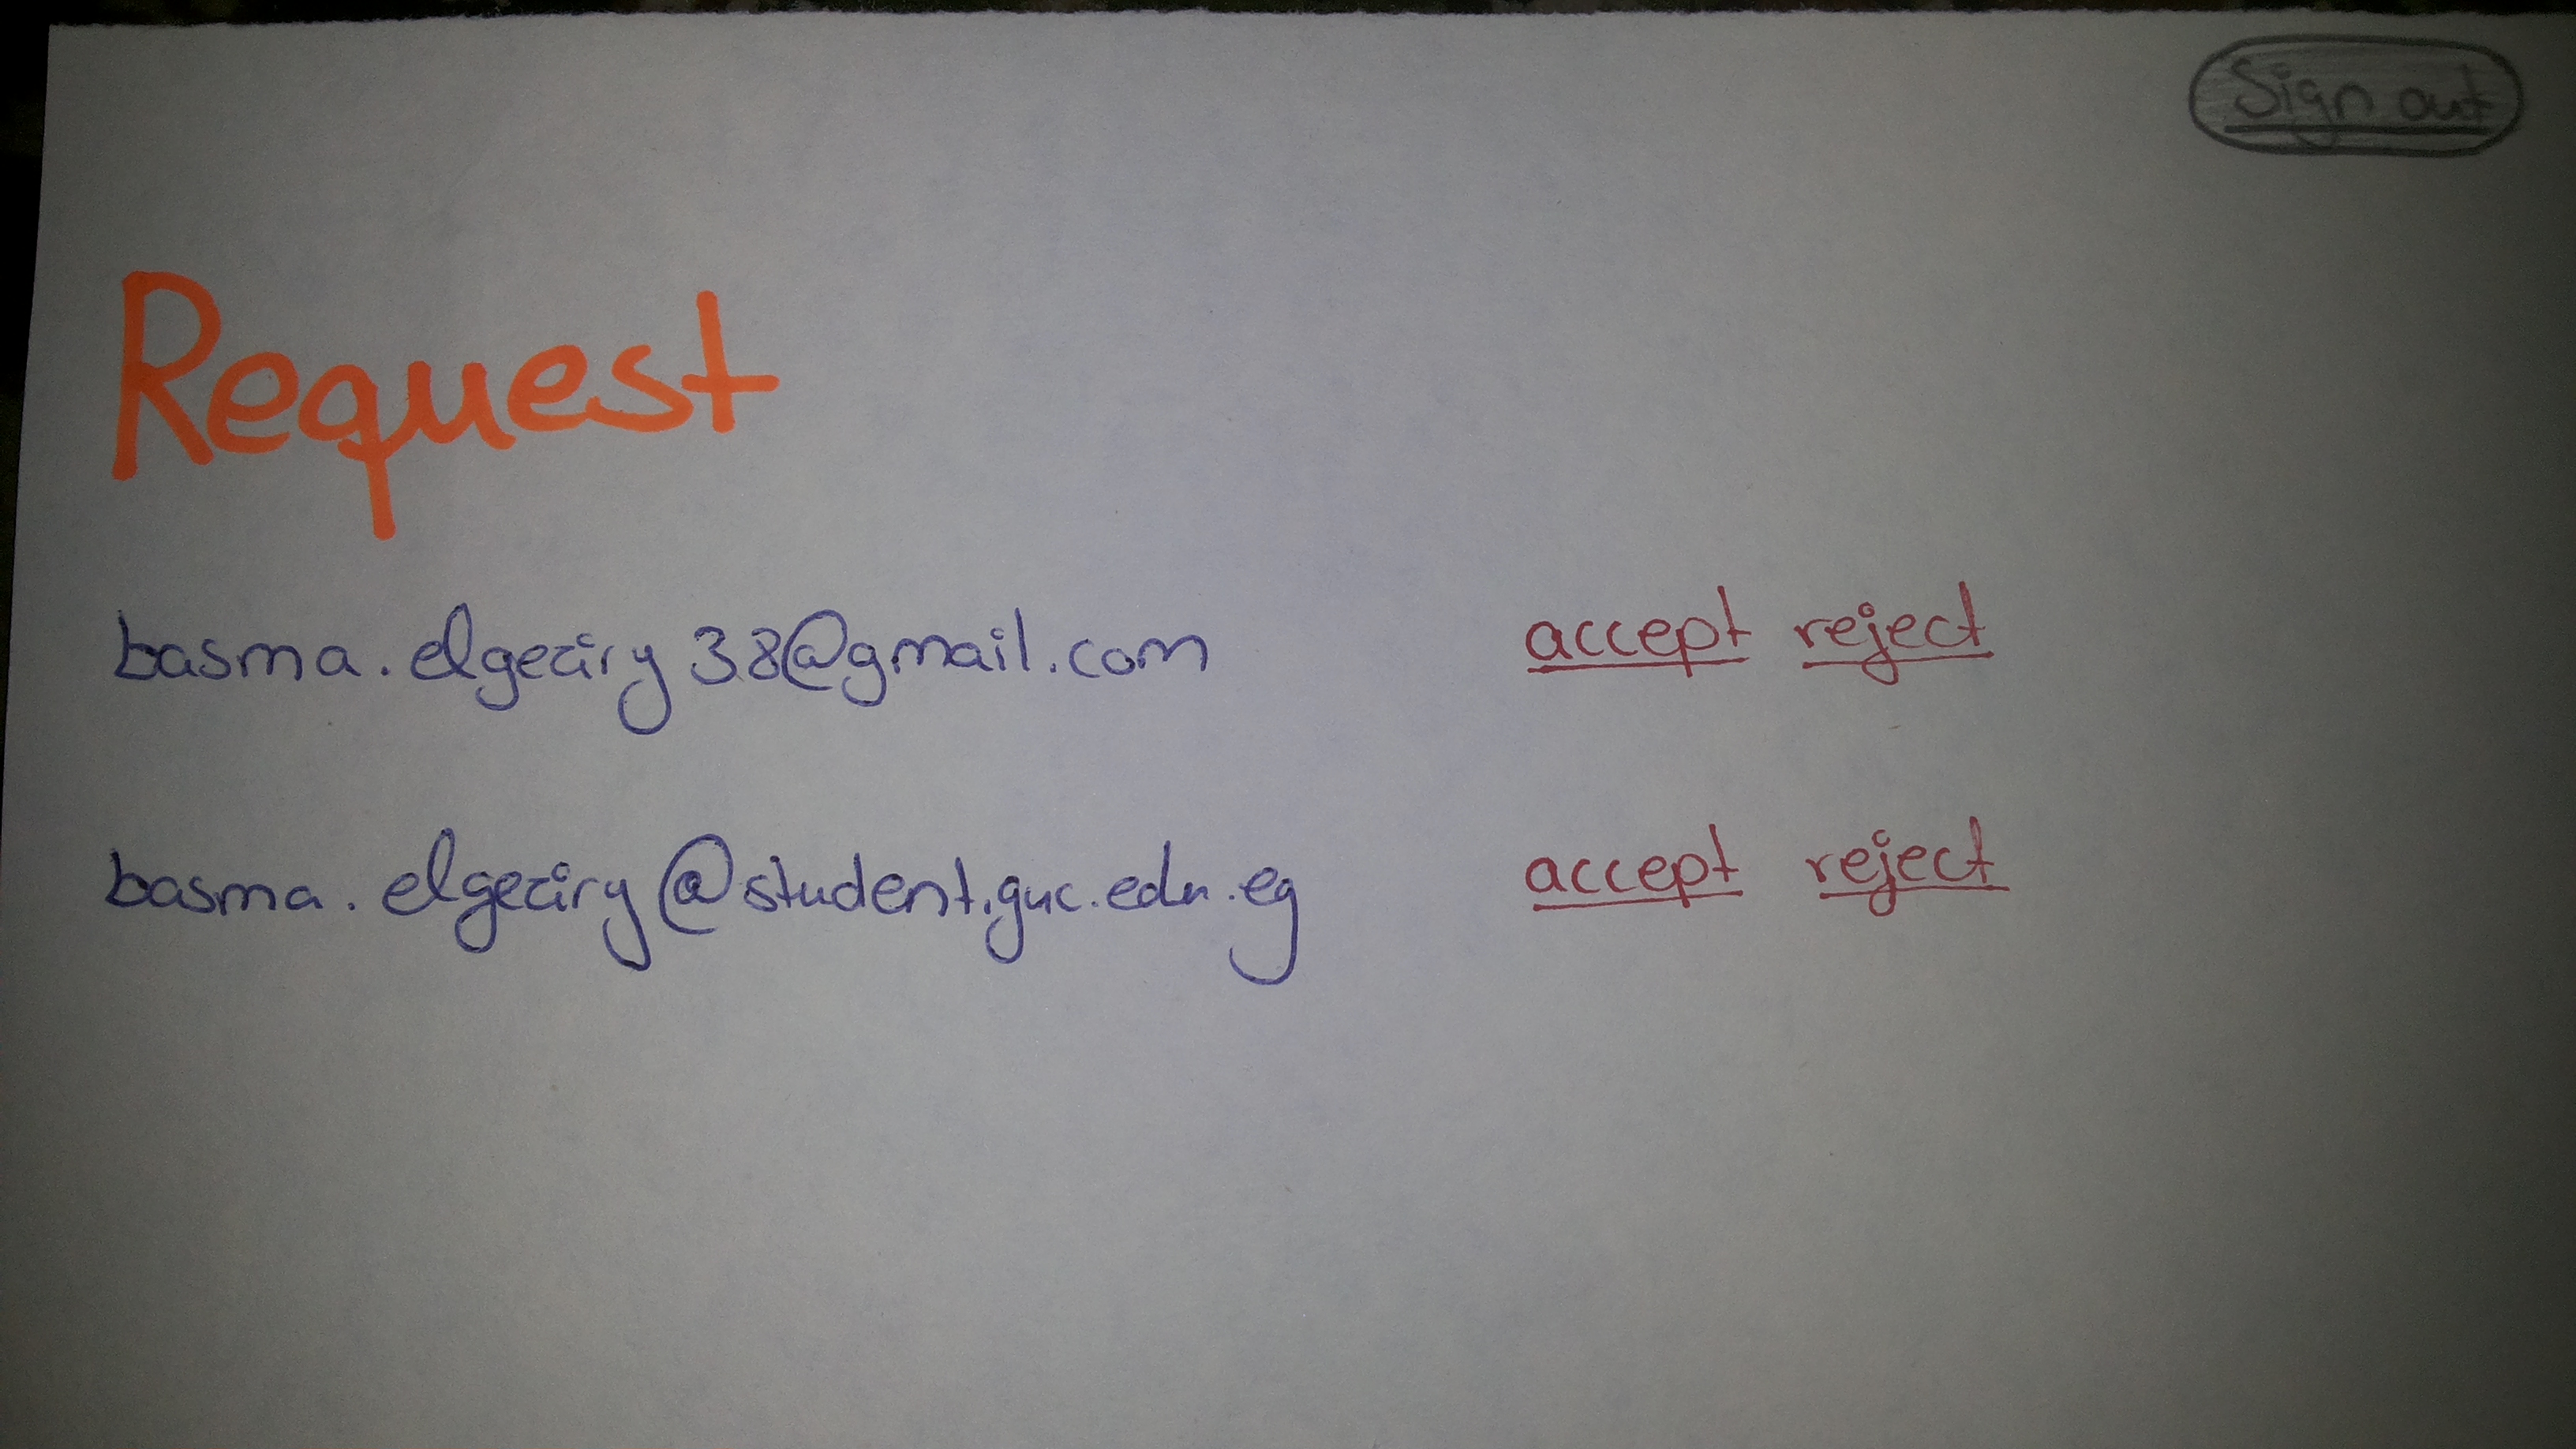 Sign out
Request
basma.elgeziry38@gmail.com accept reject
basma.elgeziry@student.guc.edu.eg accept reject